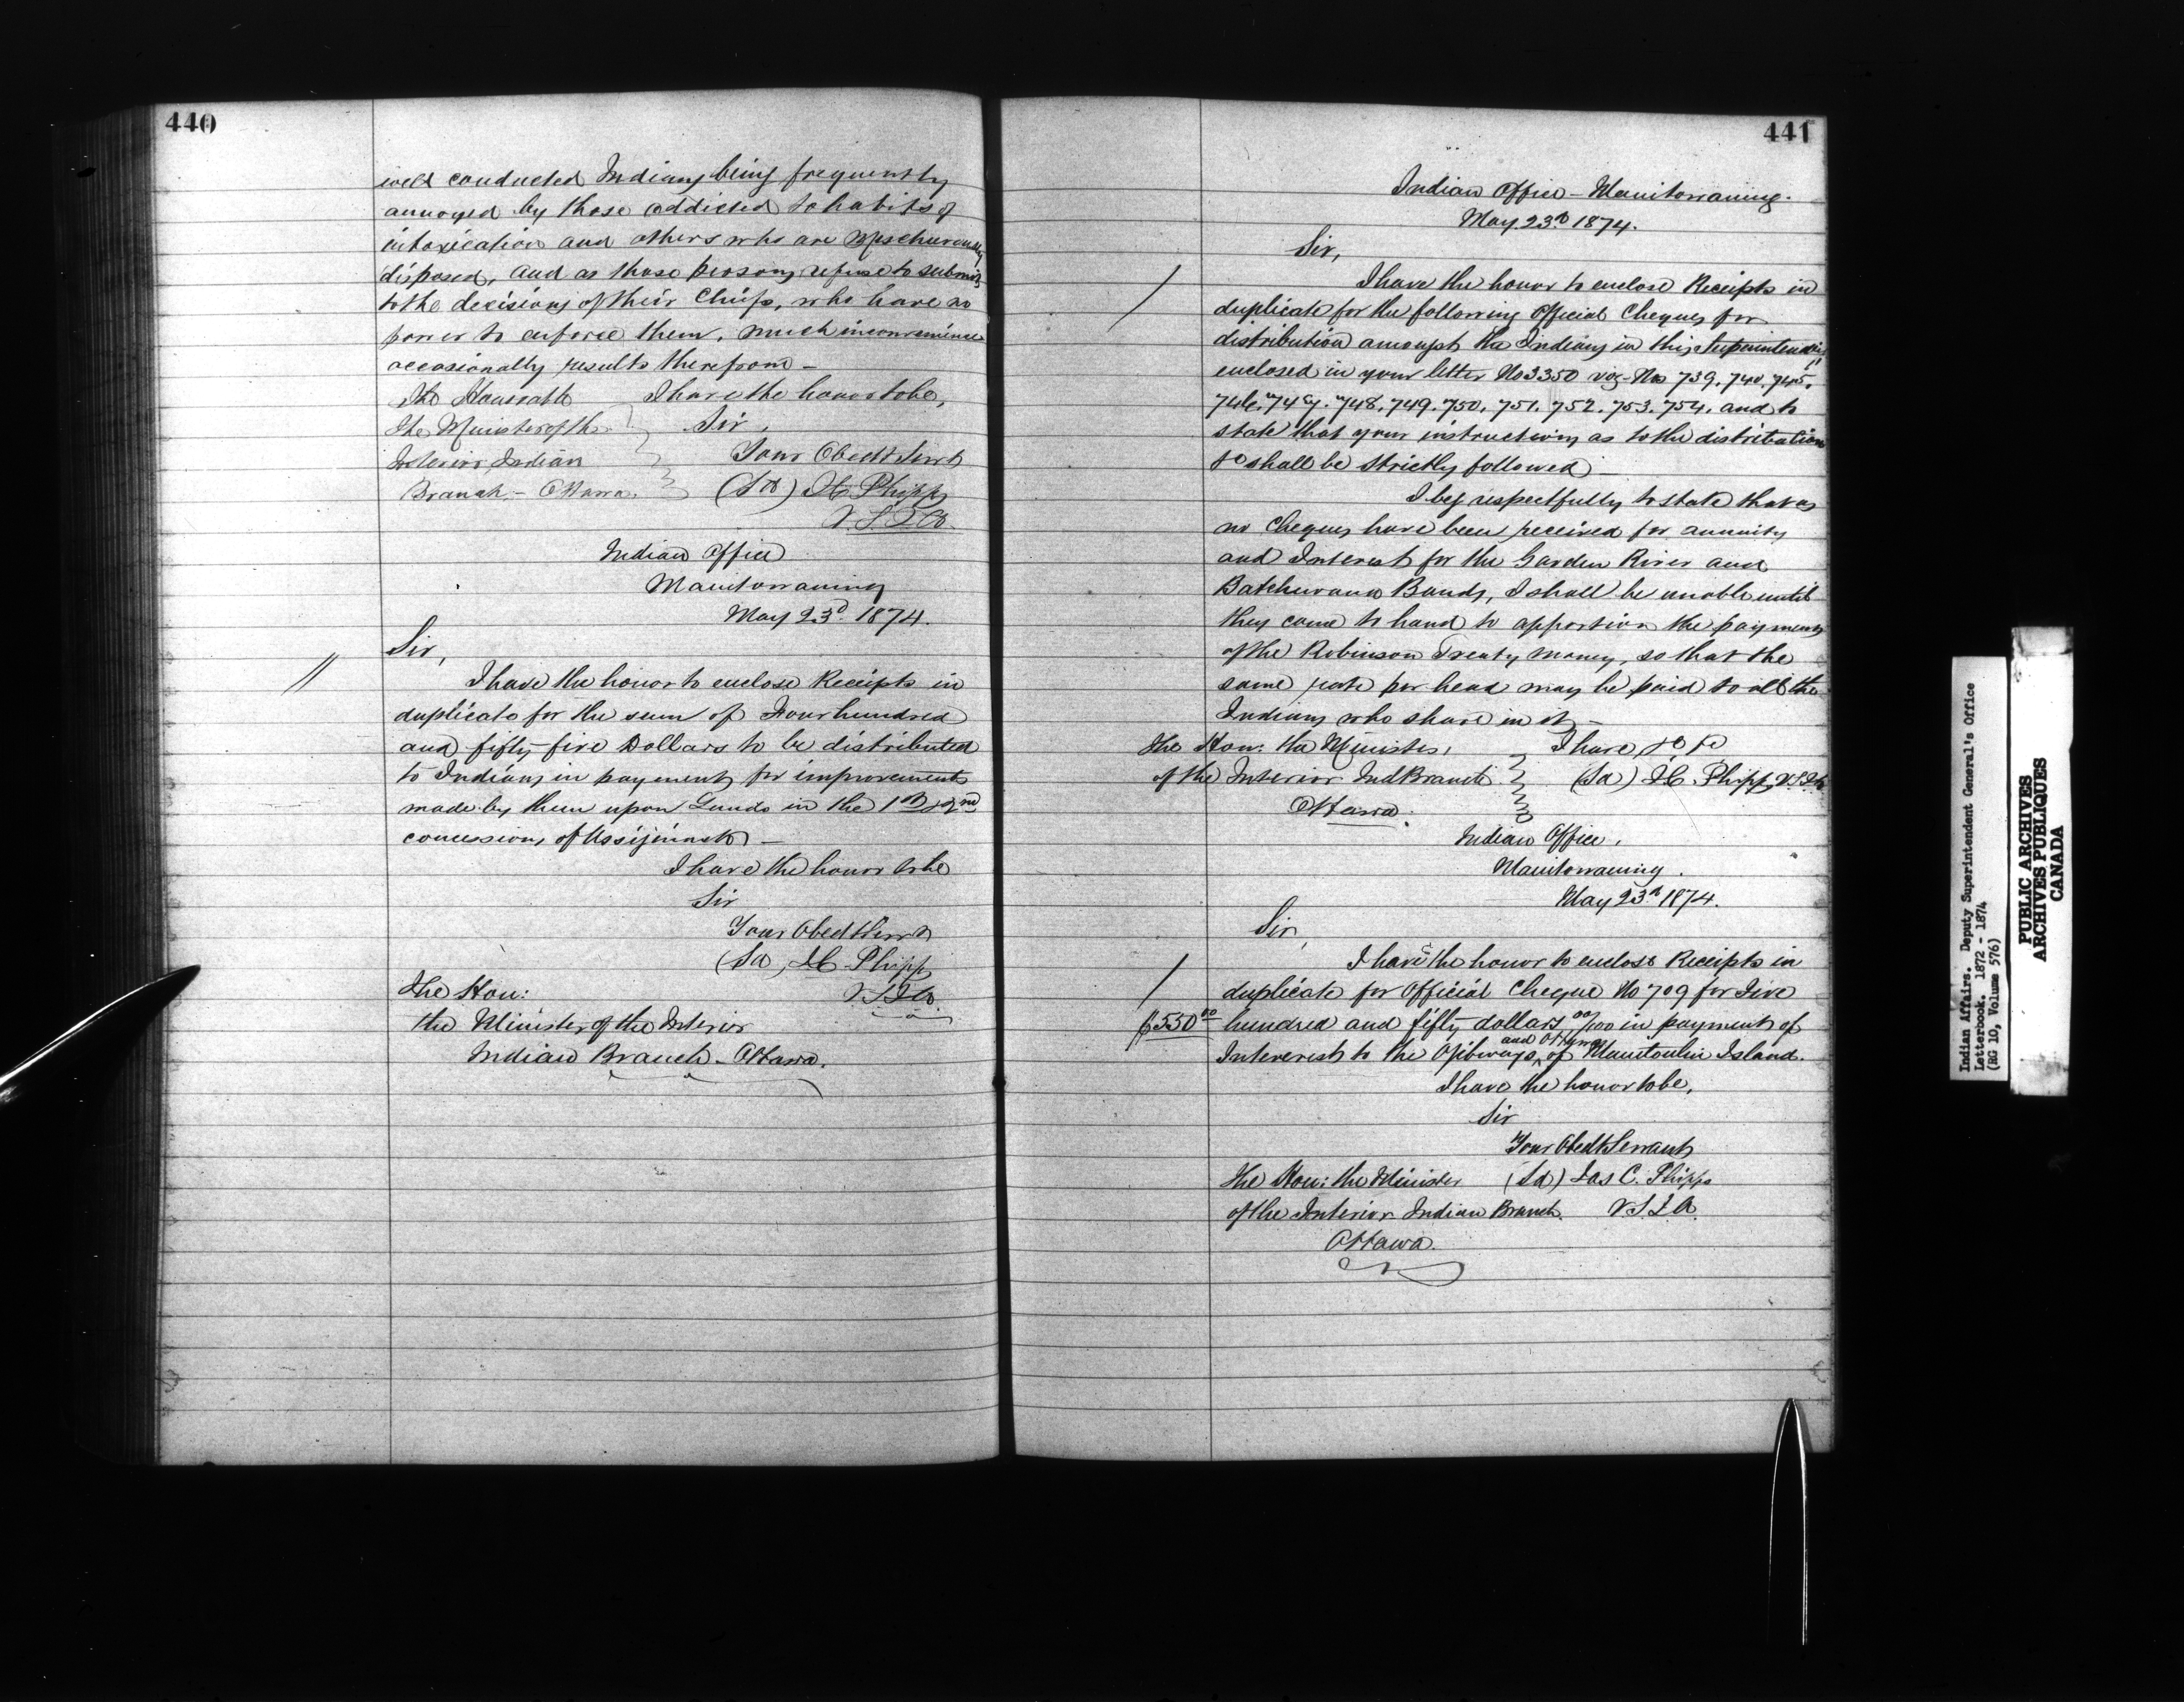 440
well conducted Indians being frequently
annoyed by those addicted to habits of
intoxication and others who are mischievously
disposed, and as those persons refuse to submit
to the decisions of their Chiefs, who have no
power to enforce them, much inconvenience
occasionally results therefrom –
The Honorable I have the honor to be,
The Minister of the Sir,
Interior Indian Your Obedt Servt
Branch – Ottawa. (Sd) J C Phipps
V.S.I.A.
Indian Office
Manitowaning
May 23d. 1874.
Sir,
I have the honor to enclose Receipts in
duplicate for the sum of Four hundred
and fifty five Dollars to be distributed
to Indians in payment for improvements
made by them upon Lands in the 1st & 2nd
concessions of Assiginack –
I have the honor to be
Sir
Your Obedt Servt
(Sd) J C Phipps
The Hon: V.S.I.A.
the Minister of the Interior
Indian Branch – Ottawa.
441
Indian Office – Manitowaning.
May 23d 1874.
Sir,
I have the honor to enclose Receipts in
duplicate for the following Official Cheques for
distribution amongst the Indians in this Superintendency
enclosed in your letter No 3350 viz – Nos 739. 740. 745.
746. 747. 748. 749. 750. 751. 752. 753. 754. and to
state that your instructions as to the distribution
shall be strictly followed –
I beg respectfully to state that as
no Cheques have been received for annuity
and Interest for the Garden River and
Batchewana Bands, I shall be unable until
they come to hand to apportion the payments
of the Robinson Treaty money, so that the
same rate per head may be paid to all the
Indians who share in it –
The Hon: the Minister, I have &c &c
of the Interior Ind Branch (Sd) J C. Phipps V.S.I.A.
Ottawa.
Indian Office,
Manitowaning.
May 23d 1874.
Sir,
I have the honor to enclose Receipts in
duplicate for Official Cheque No 709 for Five
$550 00 hundred and fifty dollars 00/100 in payment of
and Ottawas
Interest to the Ojibways of Manitoulin Island.
I have the honor to be,
Sir
Your Obedt Servant
The Hon: the Minister (Sd) Jas C. Phipps
of the Interior Indian Branch. V.S.I.A.
Ottawa.
Indian Affairs. Deputy Superintendent General's Office
Letterbook. 1872 - 1874
(RG 10, Volume 576)
PUBLIC ARCHIVES
ARCHIVES PUBLIQUES
CANADA